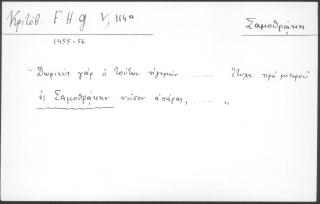 Κριτόβ. F H G V, 114a Σαμοθράκη
1455-56
"Δωριεὺς γάρ ὁ τούτων ἡγεμών ....... ἔτυχε πρό μικροῦ
ἐς Σαμοθράκην νῆσον ἀπάρας, ...... "